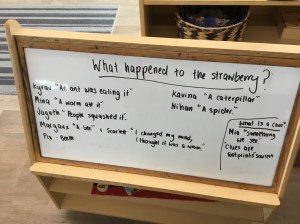 What happened to the strawberry?
"An ant was eating it"
Mina "A warm ate it"
"People squashed it.
& Scarlet "I changed my mind,
I thought it was a worm."
Kavina "A caterpillar"
Nihan "A spider."
What is a clue?
Mia "Something
we see"
"Clues are
footprints